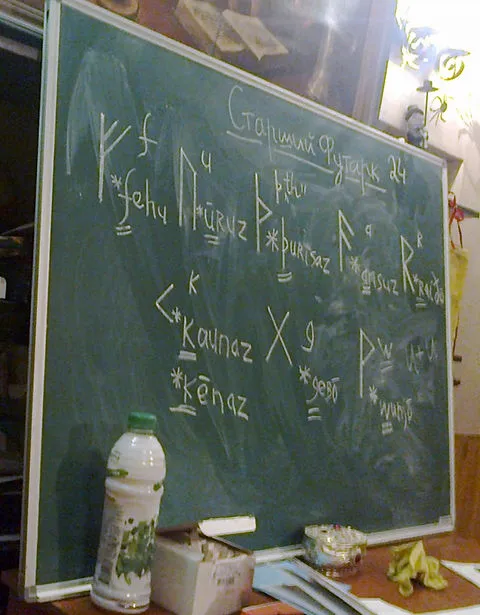 Старший Футарк 24
ᚠ f *fehu
ᚢ u *ūruz
ᚦ þ,th *þurisaz
ᚨ a *ansuz
ᚱ R *raiđo
ᚲ K *Kaunaz
*Kēnaz
ᚷ g *gebō
ᚹ w u+u *wunjō